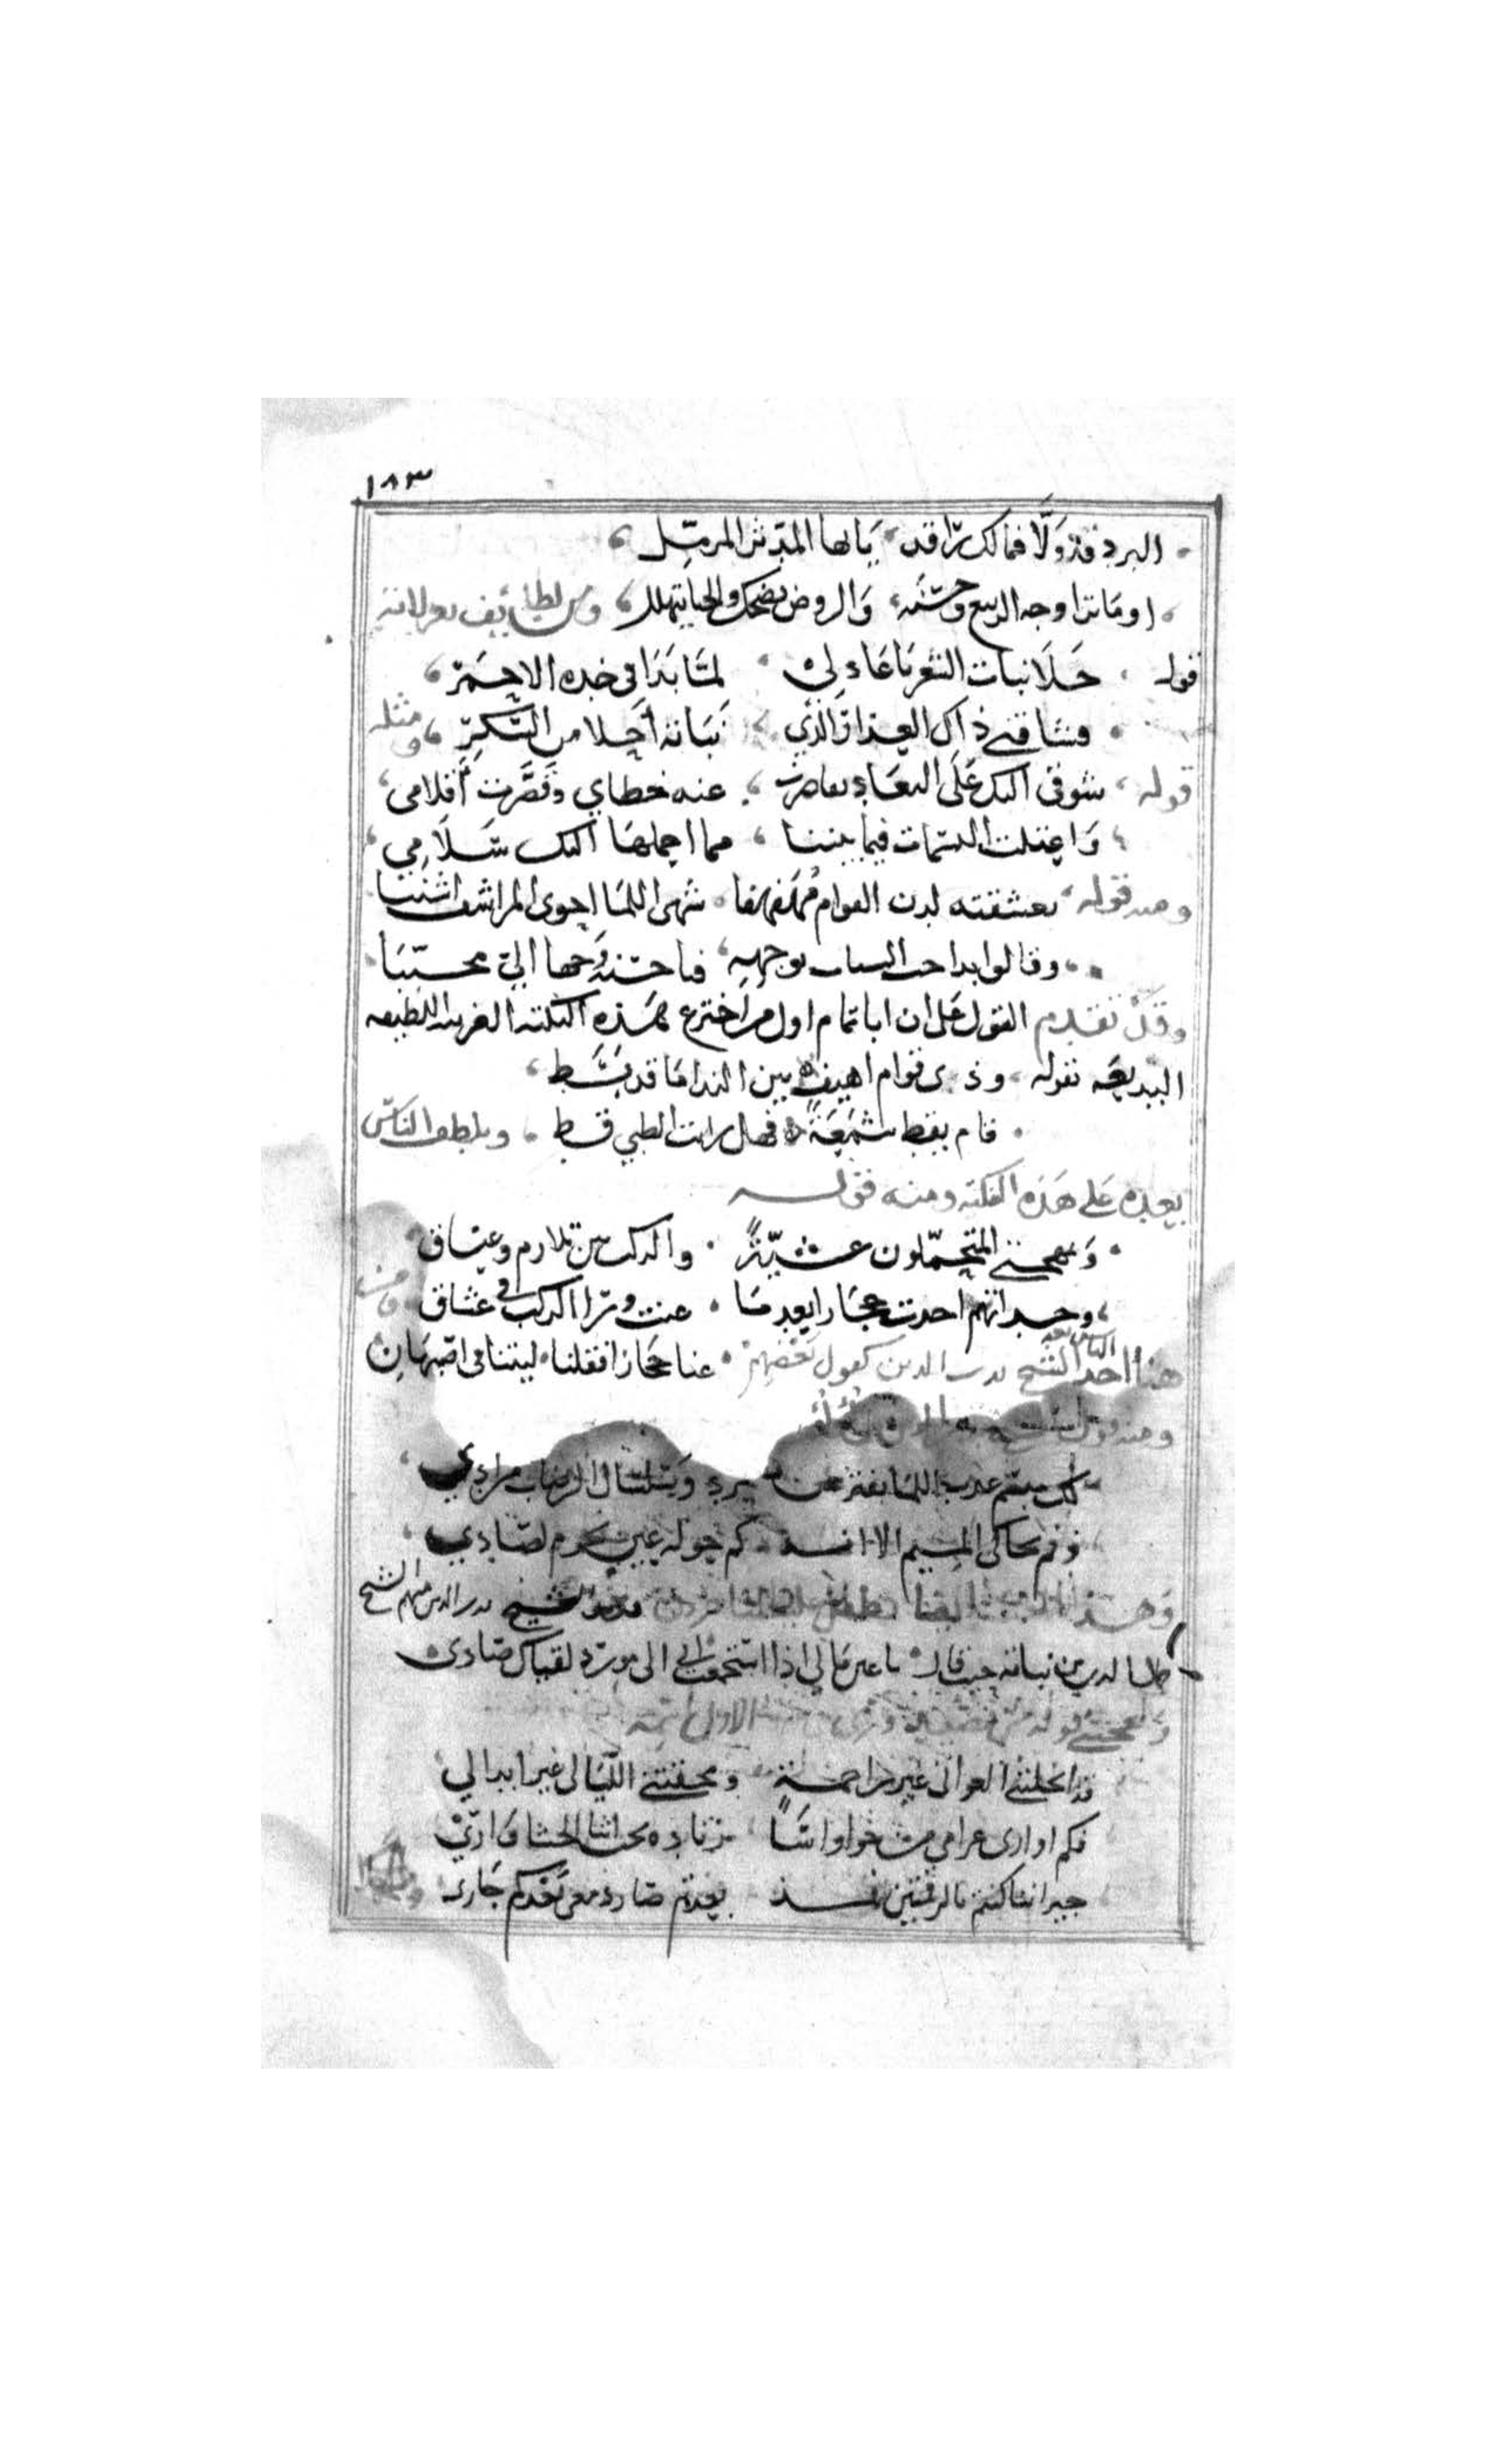 ١٨٣
البرد قد ولّا فمالك راقد يا ايها المدّثر المزمّل
او ما ترا وجه الربيع وحسنه والروض يضحك والحيا يتهلل ومن لطايف
قوله حلا نبات الشعر يا عاذلى لمّا بدا فى خده الاحمر
فشاقنى ذاك العذار الذي نباته أحلا من السكّر ومثله
قوله شوقى اليك على البعاد تقاصرت عنه خطاي وقصّرت أقلامى
واعتلت النسمات فيما بيننا مما احملها اليك سلامي
ومنه قوله تعشقته لدن القوام مهفهفا شهى اللما احوى المراشف اشنبا
وقالوا بدا حب الشباب بوجهه فيا حسنه وجها الي محببا
وقد تقدم القول على ان ابا تمام اول من اخترع هذه النكته الغريبه اللطيفه
البديعه بقوله وذى قوام اهيف بين النداما قد نشط
قام يقط شمعة فهل رايت الظبي قط وتلطف الناس
بعده على هذه النكته ومنه قوله
وبمهجتى المتحمّلون عشيّة والركب بين تلازم وعناق
وحداتهم احدت حجازا بعدما غنت ورا الركب فى عشاق
هنا احد الشيخ بدر الدين كقول بعضهم غنا حجازا فقلنا ليتنا فى اصبهان
ومنه قول
لك مبسم عذب اللما يفتر عن برد
وفم يحاكى الميم الا انه كم حوله عين تحوم لصادي
وهذا ايضا الشيخ بدر الدين منهم الشيخ
جمال الدين بن نباته حيث قال يا عين مالي اذا الى مورد لقياك صادى
قوله الاول
قد انحلتنى الغوانى غير راحمة ومحقتنى الليالى غير ابدالي
فكم اوارى غرامي من زناده تحت اثنا الحشا وارىّ
جيراننا كنتم بالرقمتين فمذ بعدتم صار دمعى بعدكم جارى